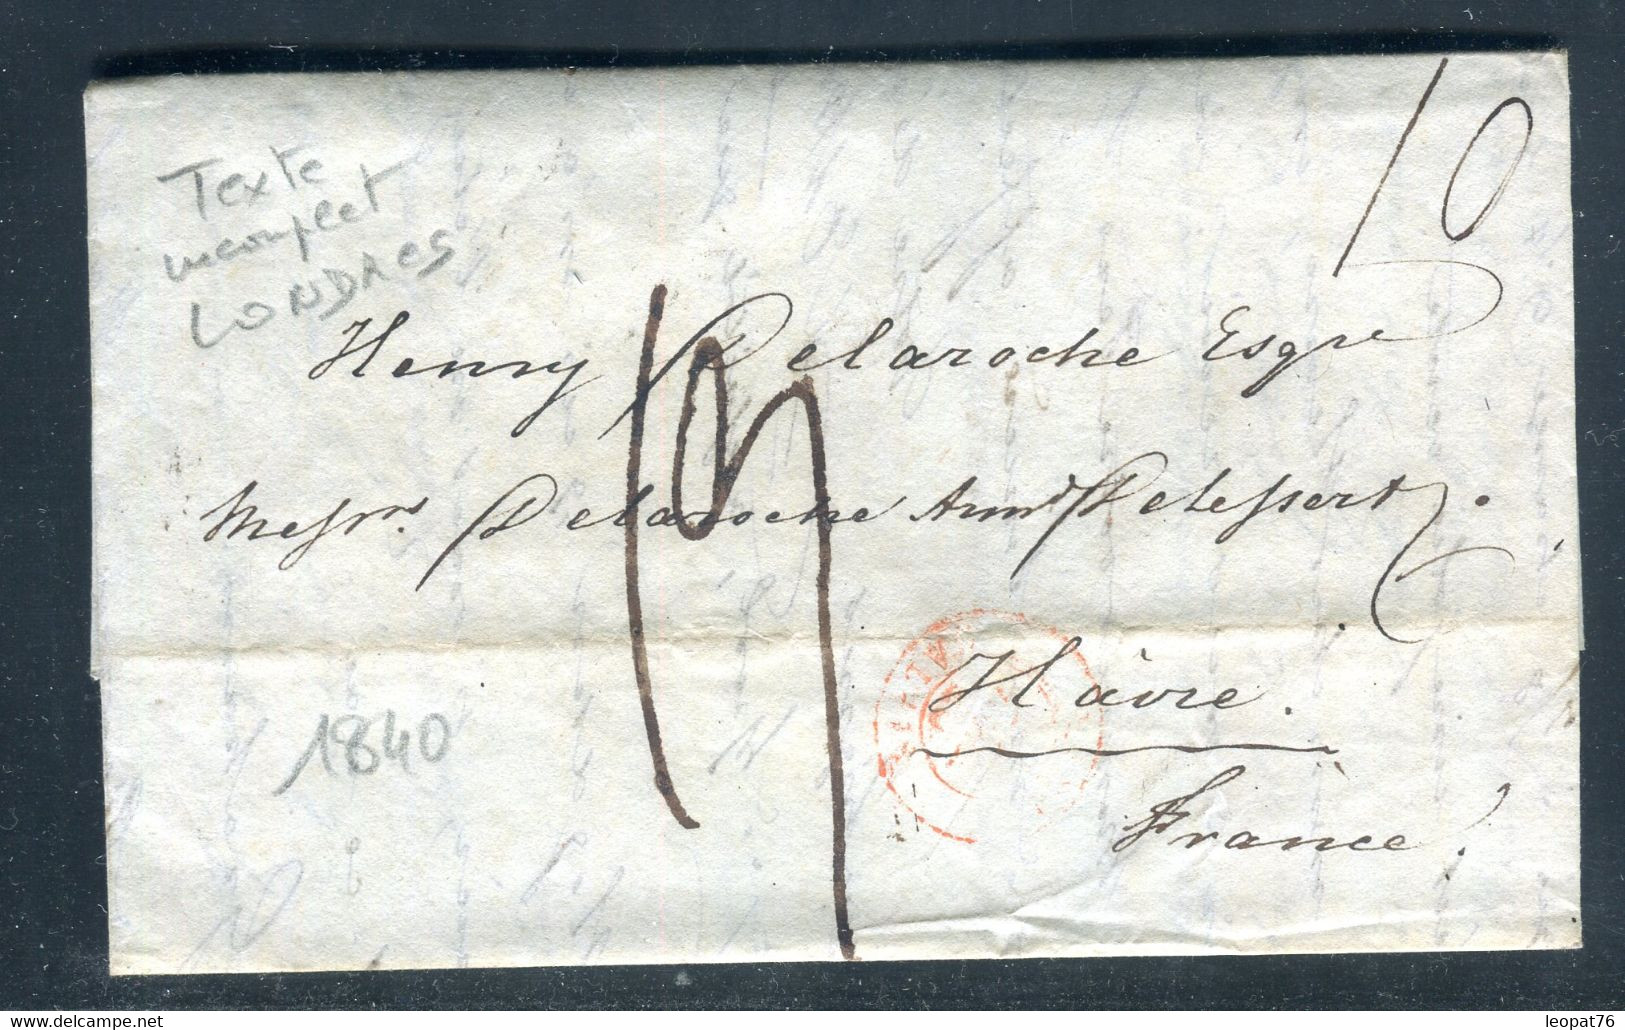 10
Texte
incomplet
LONDRES
Henry Delaroche Esqre
19
Messrs. Delaroche Armd Delessert
Hâvre.
1840
France.
www.delcampe.net
leopat76